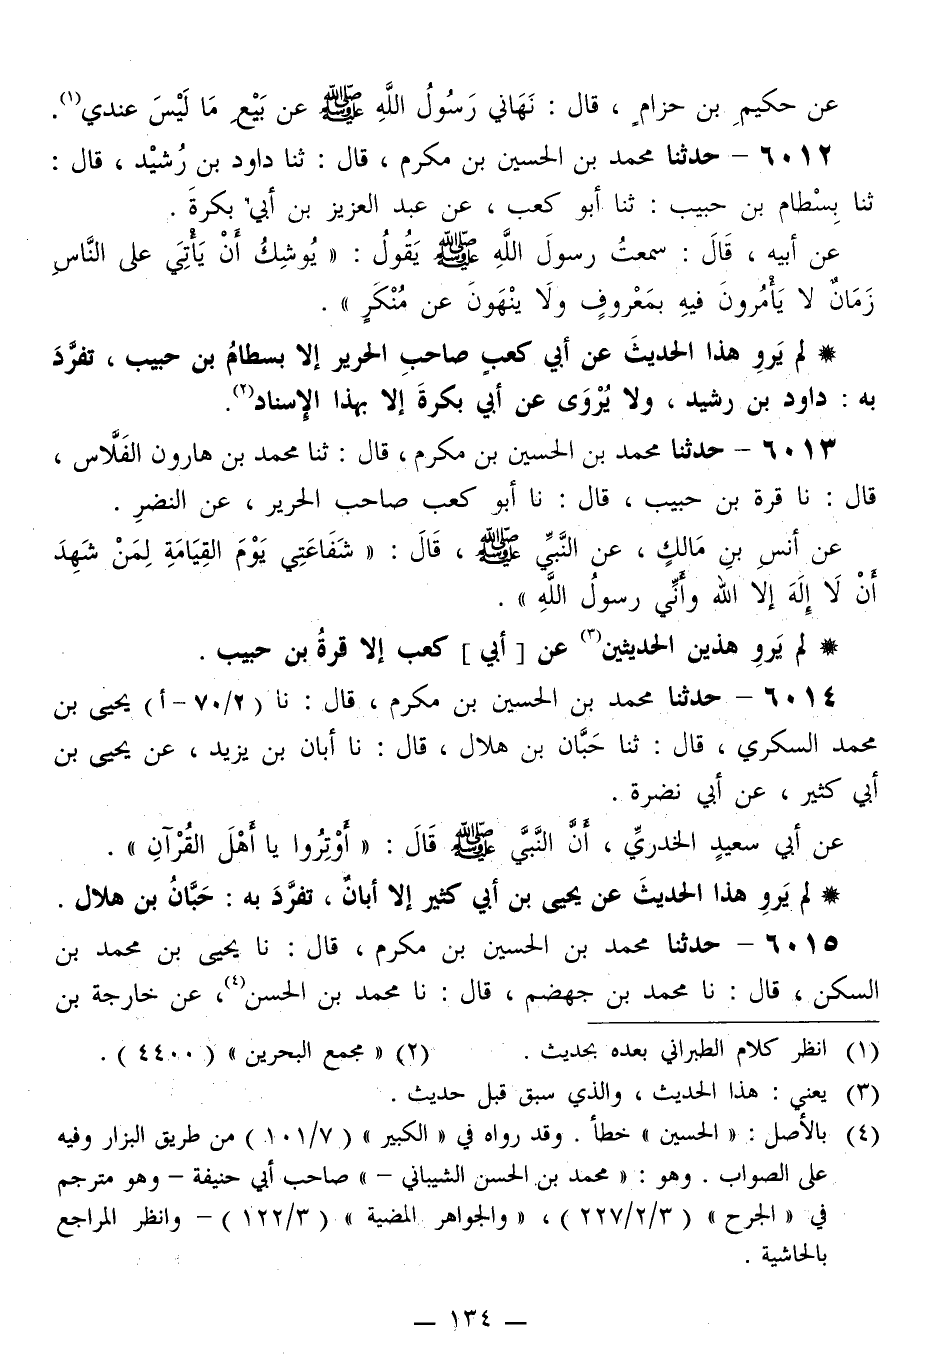 عن حكيمِ بن حزامٍ ، قال : نَهَاني رَسُولُ اللَّهِ ﷺ عن بَيْعِ مَا لَيْسَ عندي(١).
٦٠١٢ – حدثنا محمد بن الحسين بن مكرم ، قال : ثنا داود بن رُشَيْد ، قال :
ثنا بِسْطام بن حبيب : ثنا أبو كعب ، عن عبد العزيز بن أبي بكرةَ .
عن أبيه ، قَالَ : سمعتُ رسولَ اللَّهِ ﷺ يَقُولُ : « يُوشِكُ أَنْ يَأْتِيَ على النَّاسِ
زَمَانٌ لا يَأْمُرونَ فيهِ بمَعْروفٍ ولَا يَنْهَونَ عن مُنْكَرٍ » .
* لم يَروِ هذا الحديثَ عن أبي كعبٍ صاحبِ الحرير إلا بسطامُ بن حبيب ، تفرَّدَ
به : داود بن رشيد ، ولا يُرْوَى عن أبي بكرةَ إلا بهذا الإسناد(٢).
٦٠١٣ – حدثنا محمد بن الحسين بن مكرم ، قال : ثنا محمد بن هارون الفَلَّاس ،
قال : نا قرة بن حبيب ، قال : نا أبو كعب صاحب الحرير ، عن النضرِ .
عن أنسِ بنِ مَالكٍ ، عن النَّبيِّ ﷺ ، قَالَ : « شَفَاعَتِي يَوْمَ القِيَامَةِ لِمَنْ شَهِدَ
أَنْ لَا إِلَهَ إلا اللَّه وأَنِّي رسولُ اللَّهِ » .
* لم يَروِ هذين الحديثين(٣) عن [ أبي ] كعب إلا قرةُ بن حبيب .
٦٠١٤ – حدثنا محمد بن الحسين بن مكرم ، قال : نا ( ٧٠/٢ – أ ) يحيى بن
محمد السكري ، قال : ثنا حَبَّان بن هلال ، قال : نا أبان بن يزيد ، عن يحيى بن
أبي كثير ، عن أبي نضرة .
عن أبي سعيدٍ الخدريِّ ، أَنَّ النَّبيَّ ﷺ قَالَ : « أَوْتِرُوا يا أَهْلَ القُرْآنِ » .
* لم يَروِ هذا الحديثَ عن يحيى بن أبي كثير إلا أبانٌ ، تفرَّدَ به : حَبَّانُ بن هلال .
٦٠١٥ – حدثنا محمد بن الحسين بن مكرم ، قال : نا يحيى بن محمد بن
السكن ، قال : نا محمد بن جهضم ، قال : نا محمد بن الحسن(٤)، عن خارجة بن
(١) انظر كلام الطبراني بعده بحديث . (٢) « مجمع البحرين » ( ٤٤٠٠ ) .
(٣) يعني : هذا الحديث ، والذي سبق قبل حديث .
(٤) بالأصل : « الحسين » خطأ . وقد رواه في « الكبير » ( ١٠١/٧ ) من طريق البزار وفيه
على الصواب . وهو : « محمد بن الحسن الشيباني – » صاحب أبي حنيفة – وهو مترجم
في « الجرح » ( ٢٢٧/٢/٣ ) ، « والجواهر المضية » ( ١٢٢/٣ ) – وانظر المراجع
بالحاشية .
– ١٣٤ –